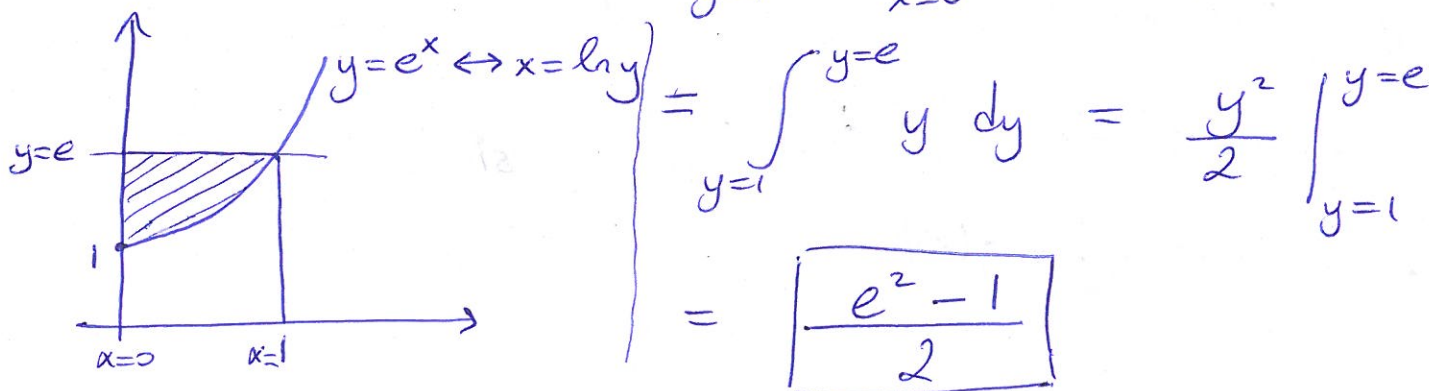 y=eˣ ↔ x=ln y
y=e
1
x=0 x=1
= ∫ y=e y=1 y dy = y²/2 | y=e y=1
= e² − 1 / 2